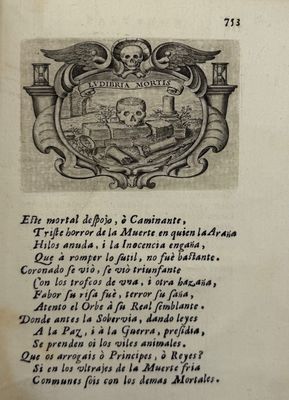 753
LVDIBRIA MORTIS
Este mortal despojo, ò Caminante,
Triste horror de la Muerte en quien la Araña
Hilos anuda, i la Inocencia engaña,
Que à romper lo sutil, no fuè bastante.
Coronado se viò, se viò triunfante
Con los trofeos de vna, i otra hazaña,
Fabor su risa fuè, terror su saña,
Atento el Orbe à su Real semblante.
Donde antes la Sobervia, dando leyes
A la Paz, i à la Guerra, presidia,
Se prenden oi los viles animales.
Que os arrogais ò Principes, ò Reyes?
Si en los vltrajes de la Muerte fria
Conmunes sois con los demas Mortales.